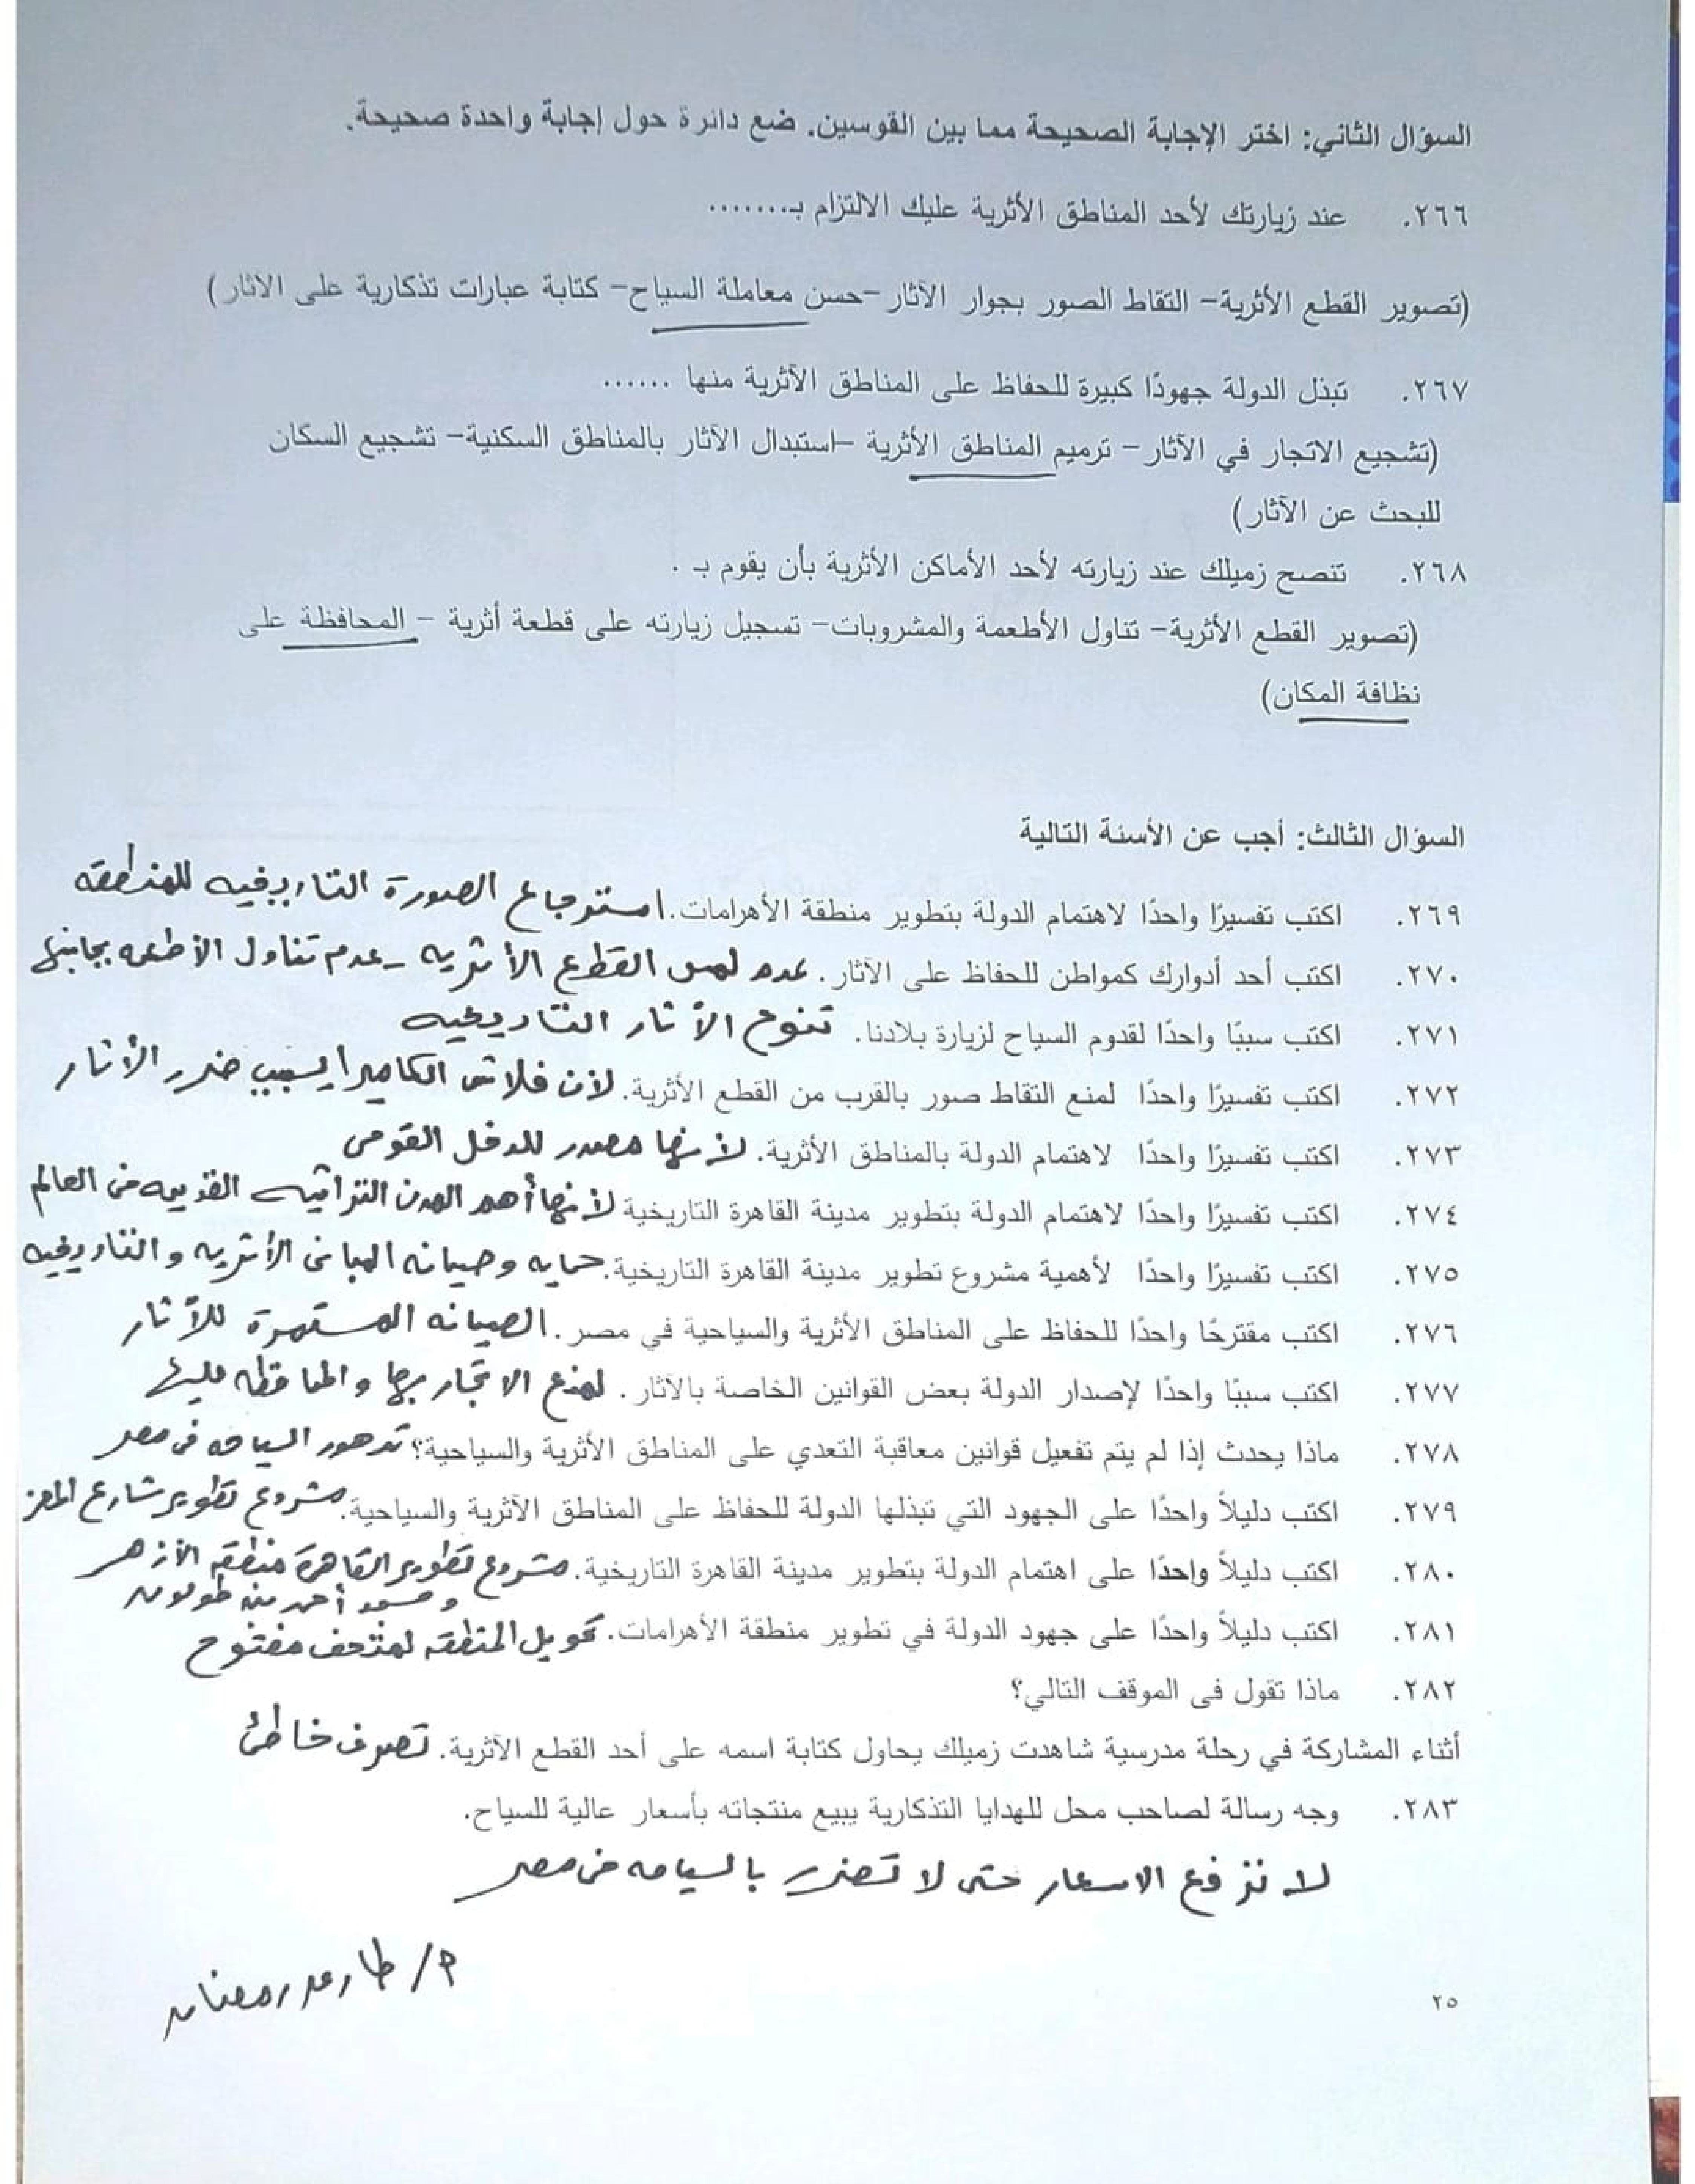 السؤال الثاني: اختر الإجابة الصحيحة مما بين القوسين. ضع دائرة حول إجابة واحدة صحيحة.
٢٦٦. عند زيارتك لأحد المناطق الأثرية عليك الالتزام بـ.......
(تصوير القطع الأثرية- التقاط الصور بجوار الآثار -حسن معاملة السياح- كتابة عبارات تذكارية على الاثار)
٢٦٧. تبذل الدولة جهودًا كبيرة للحفاظ على المناطق الآثرية منها ......
(تشجيع الاتجار في الآثار- ترميم المناطق الأثرية -استبدال الآثار بالمناطق السكنية- تشجيع السكان
للبحث عن الآثار)
٢٦٨. تنصح زميلك عند زيارته لأحد الأماكن الأثرية بأن يقوم بـ .
(تصوير القطع الأثرية- تناول الأطعمة والمشروبات- تسجيل زيارته على قطعة أثرية - المحافظة على
نظافة المكان)
السؤال الثالث: أجب عن الأسئة التالية
٢٦٩. اكتب تفسيرًا واحدًا لاهتمام الدولة بتطوير منطقة الأهرامات. استرجاع الصورة التاريخيه للمنطقه
٢٧٠. اكتب أحد أدوارك كمواطن للحفاظ على الآثار. عدم لمس القطع الأثريه - عدم تناول الأطعمه بجانبها
٢٧١. اكتب سببًا واحدًا لقدوم السياح لزيارة بلادنا. تنوع الأثار التاريخيه
٢٧٢. اكتب تفسيرًا واحدًا لمنع التقاط صور بالقرب من القطع الأثرية. لأن فلاش الكاميرا يسبب ضرر الأثار
٢٧٣. اكتب تفسيرًا واحدًا لاهتمام الدولة بالمناطق الأثرية. لأنها مصدر للدخل القومى
٢٧٤. اكتب تفسيرًا واحدًا لاهتمام الدولة بتطوير مدينة القاهرة التاريخية لأنها أهم المدن التراثيه القديمه فى العالم
٢٧٥. اكتب تفسيرًا واحدًا لأهمية مشروع تطوير مدينة القاهرة التاريخية. حمايه وصيانه المبانى الأثريه والتاريخيه
٢٧٦. اكتب مقترحًا واحدًا للحفاظ على المناطق الأثرية والسياحية في مصر. الصيانه المستمرة للأثار
٢٧٧. اكتب سببًا واحدًا لإصدار الدولة بعض القوانين الخاصة بالآثار. لمنع الاتجار بها والمحافظه عليها
٢٧٨. ماذا يحدث إذا لم يتم تفعيل قوانين معاقبة التعدي على المناطق الأثرية والسياحية؟ تدهور السياحه فى مصر
٢٧٩. اكتب دليلاً واحدًا على الجهود التي تبذلها الدولة للحفاظ على المناطق الآثرية والسياحية. مشروع تطوير شارع المعز
٢٨٠. اكتب دليلاً واحدًا على اهتمام الدولة بتطوير مدينة القاهرة التاريخية. مشروع تطوير القاهرة منطقه الأزهر
ومسجد أحمد بن طولون
٢٨١. اكتب دليلاً واحدًا على جهود الدولة في تطوير منطقة الأهرامات. تحويل المنطقه لمتحف مفتوح
٢٨٢. ماذا تقول فى الموقف التالي؟
أثناء المشاركة في رحلة مدرسية شاهدت زميلك يحاول كتابة اسمه على أحد القطع الآثرية. تصرف خاطئ
٢٨٣. وجه رسالة لصاحب محل للهدايا التذكارية يبيع منتجاته بأسعار عالية للسياح.
لا ترفع الاسعار حتى لا تضر بالسياحه فى مصر
م/ طارق رمضان
٢٥